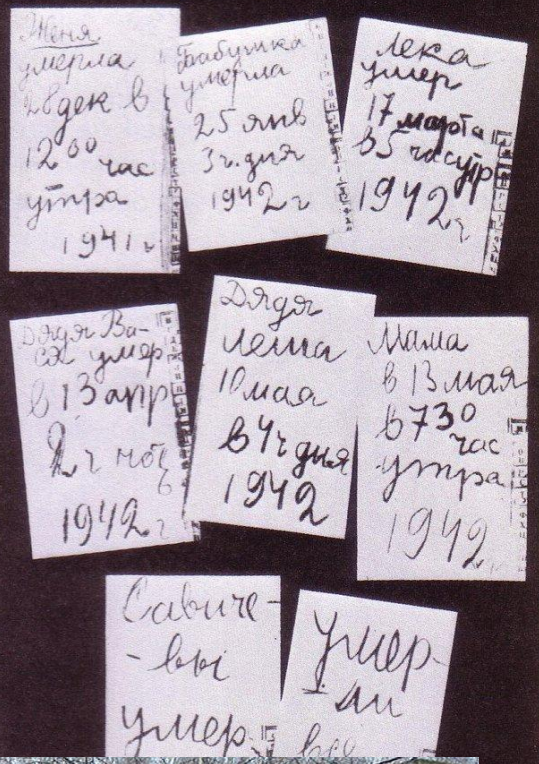 Женя
умерла
28 дек в
12 00 час
утра
1941 г
Бабушка
умерла
25 янв
3 ч. дня
1942 г
Лека
умер
17 марта
в 5 час утр
1942 г
Дядя Ва-
ся умер
в 13 апр
2 ч ночь
1942 г
Дядя
Леша
10 мая
в 4 ч дня
1942
Мама
в 13 мая
в 7 30
час
утра
1942
Савиче-
-вы
умер
Умер-
ли
все